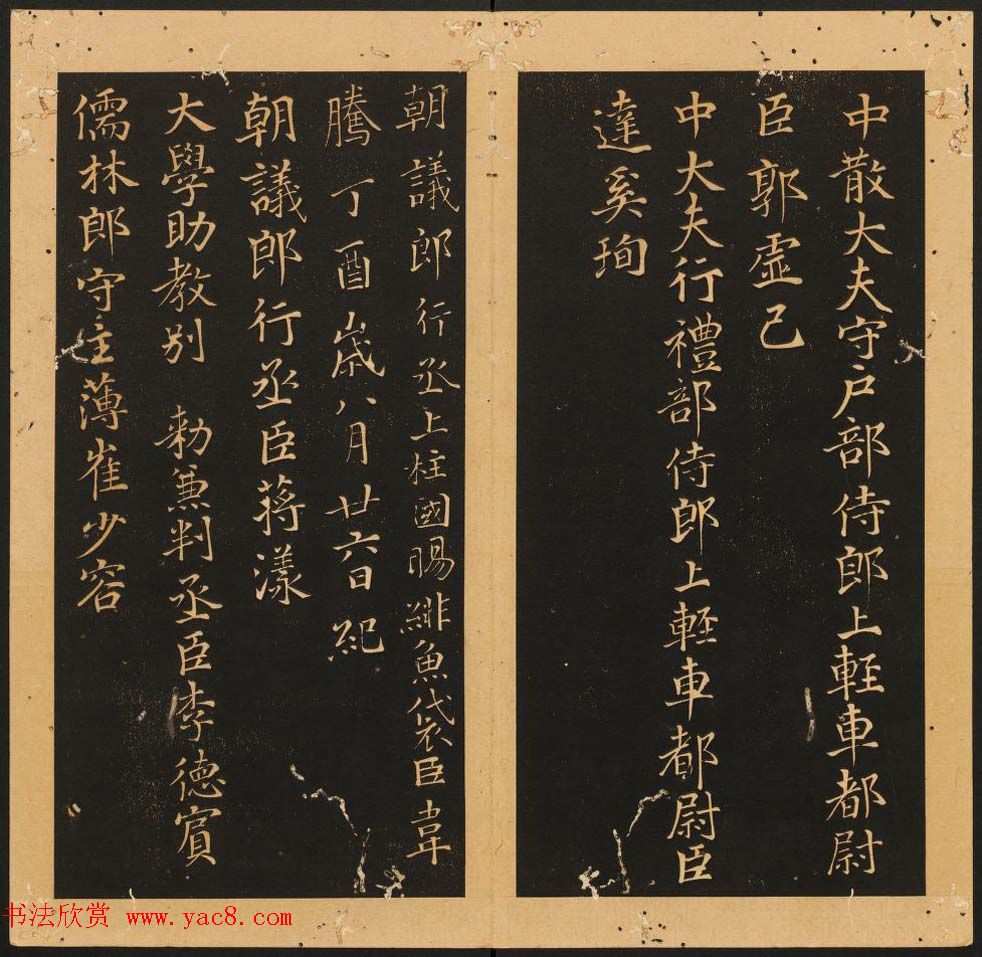 中散大夫守戶部侍郎上輕車都尉
臣郭虛己
中大夫行禮部侍郎上輕車都尉臣
達奚珣
朝議郎行丞上柱國賜緋魚袋臣韋
騰丁酉歲八月廿六日紀
朝議郎行丞臣蔣漾
大學助教別 勑兼判丞臣李德賓
儒林郎守主薄崔少容
书法欣赏 www.yac8.com